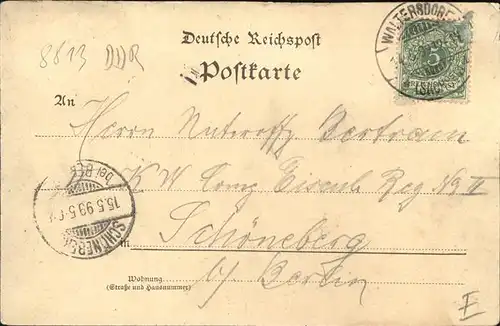 8813 DDR
Deutsche Reichspost
Postkarte
WALTERSDORF
5
An
Herrn Unteroffz Bertram
Comp. Eisenb. Reg No II
15.5.99.5-6
SCHÖNEBERG
in Schöneberg
b/ Berlin
Wohnung
(Straße und Hausnummer)